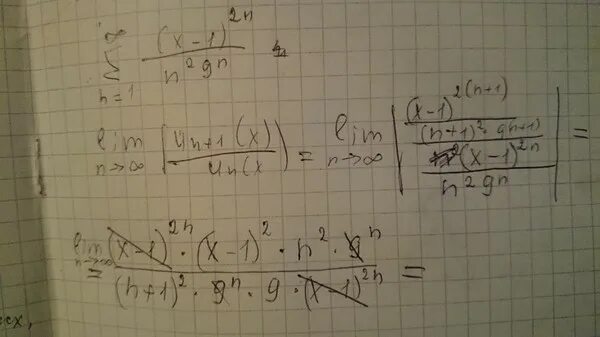 ∞ Σ n=1 (x-1)^{2n} / n^2 9^n
lim n→∞ | U_{n+1}(x) / U_n(x | = lim n→∞ | (x-1)^{2(n+1)} / (n+1)^2 · 9^{n+1} / (x-1)^{2n} / n^2 9^n | =
= lim n→∞ (x-1)^{2n} · (x-1)^2 · n^2 · 9^n / (n+1)^2 · 9^n · 9 · (x-1)^{2n} =